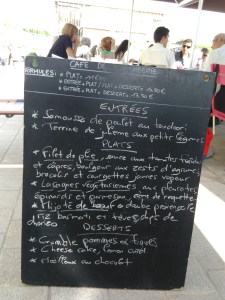 CAFE DE
FORMULES: * PLAT:
* ENTRÉE / PLAT / PLAT + DESSERT:
* ENTRÉE + PLAT + DESSERT:
ENTRÉES
* Samoussa de poulet au tandoori
* Terrine de chèvre aux petits légumes
PLATS
* Filet de plie, sauce aux tomates fraîches
et câpres, boulgour aux zestes d'agrumes
brocolis et courgettes jaunes vapeur
* Lasagnes végétariennes aux pleurotes
épinards et parmesan, de roquette
* Mijoté de boeuf à provençale
riz basmati et
chorizo
DESSERTS
* Crumble pommes et figues
* Cheese cake, lemon curd
* Moëlleux au chocolat